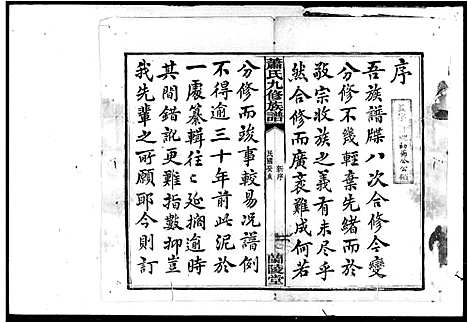 序
吾族譜牒八次合修今變
分修不幾輕棄先緒而于
敬宗收族之義有未盡乎
然合修而廣袤難成何若
蕭氏九修族譜
新序
蘭陵堂
分修而竣事較易况譜例
不得逾三十年前此泥於
一處纂輯往〻延擱逾時
其間錯訛更難指數抑豈
我先輩之所願耶今則訂